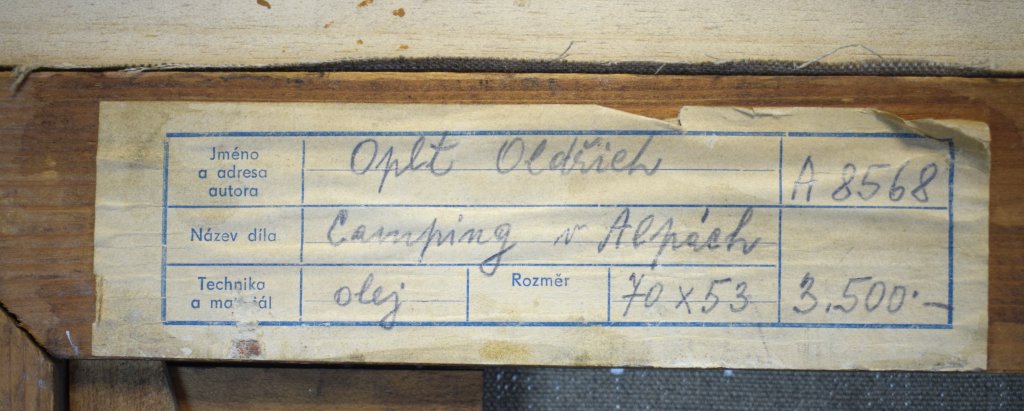 Jméno
a adresa
autora
Oplt Oldřich
A 8568
Název díla
Camping v Alpách
Technika
a materiál
olej
Rozměr
70 x 53
3.500.—